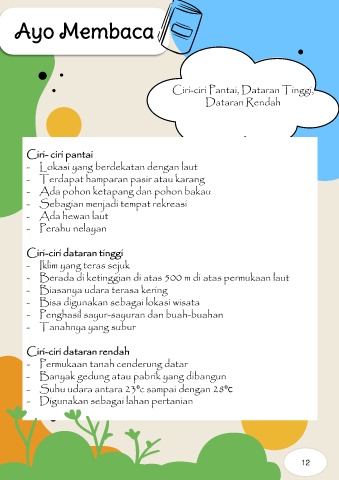 Ayo Membaca
Ciri-ciri Pantai, Dataran Tinggi,
Dataran Rendah
Ciri- ciri pantai
- Lokasi yang berdekatan dengan laut
- Terdapat hamparan pasir atau karang
- Ada pohon ketapang dan pohon bakau
- Sebagian menjadi tempat rekreasi
- Ada hewan laut
- Perahu nelayan
Ciri-ciri dataran tinggi
- Iklim yang teras sejuk
- Berada di ketinggian di atas 500 m di atas permukaan laut
- Biasanya udara terasa kering
- Bisa digunakan sebagai lokasi wisata
- Penghasil sayur-sayuran dan buah-buahan
- Tanahnya yang subur
Ciri-ciri dataran rendah
- Permukaan tanah cenderung datar
- Banyak gedung atau pabrik yang dibangun
- Suhu udara antara 23°c sampai dengan 28°c
- Digunakan sebagai lahan pertanian
12